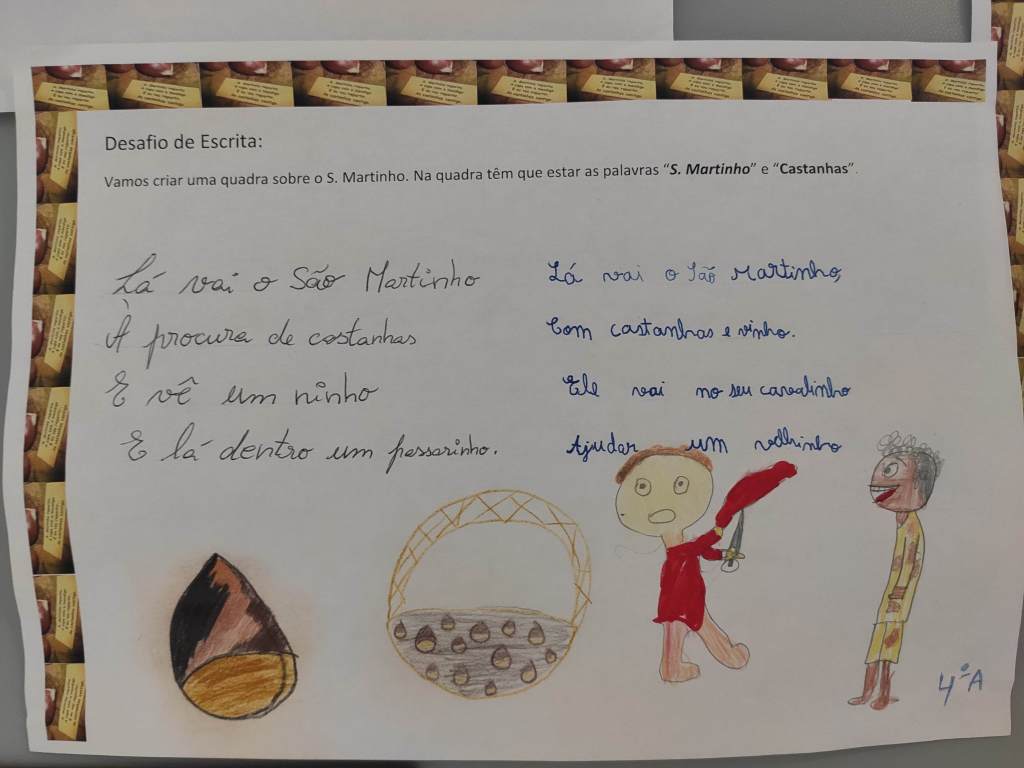 Desafio de Escrita:
Vamos criar uma quadra sobre o S. Martinho. Na quadra têm que estar as palavras “S. Martinho” e “Castanhas”.
Lá vai o São Martinho
À procura de castanhas
E vê um ninho
E lá dentro um passarinho.
Lá vai o São Martinho,
Com castanhas e vinho.
Ele vai no seu cavalinho
Ajudar um velhinho
4ºA